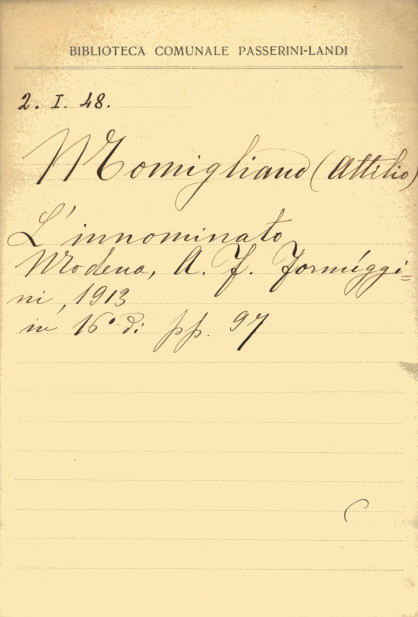 BIBLIOTECA COMUNALE PASSERINI-LANDI
2. I. 48.
Momigliano (Attilio)
L'innominato
Modena, A. F. Formíggi=
ni, 1913
in 16° di pp. 97
C